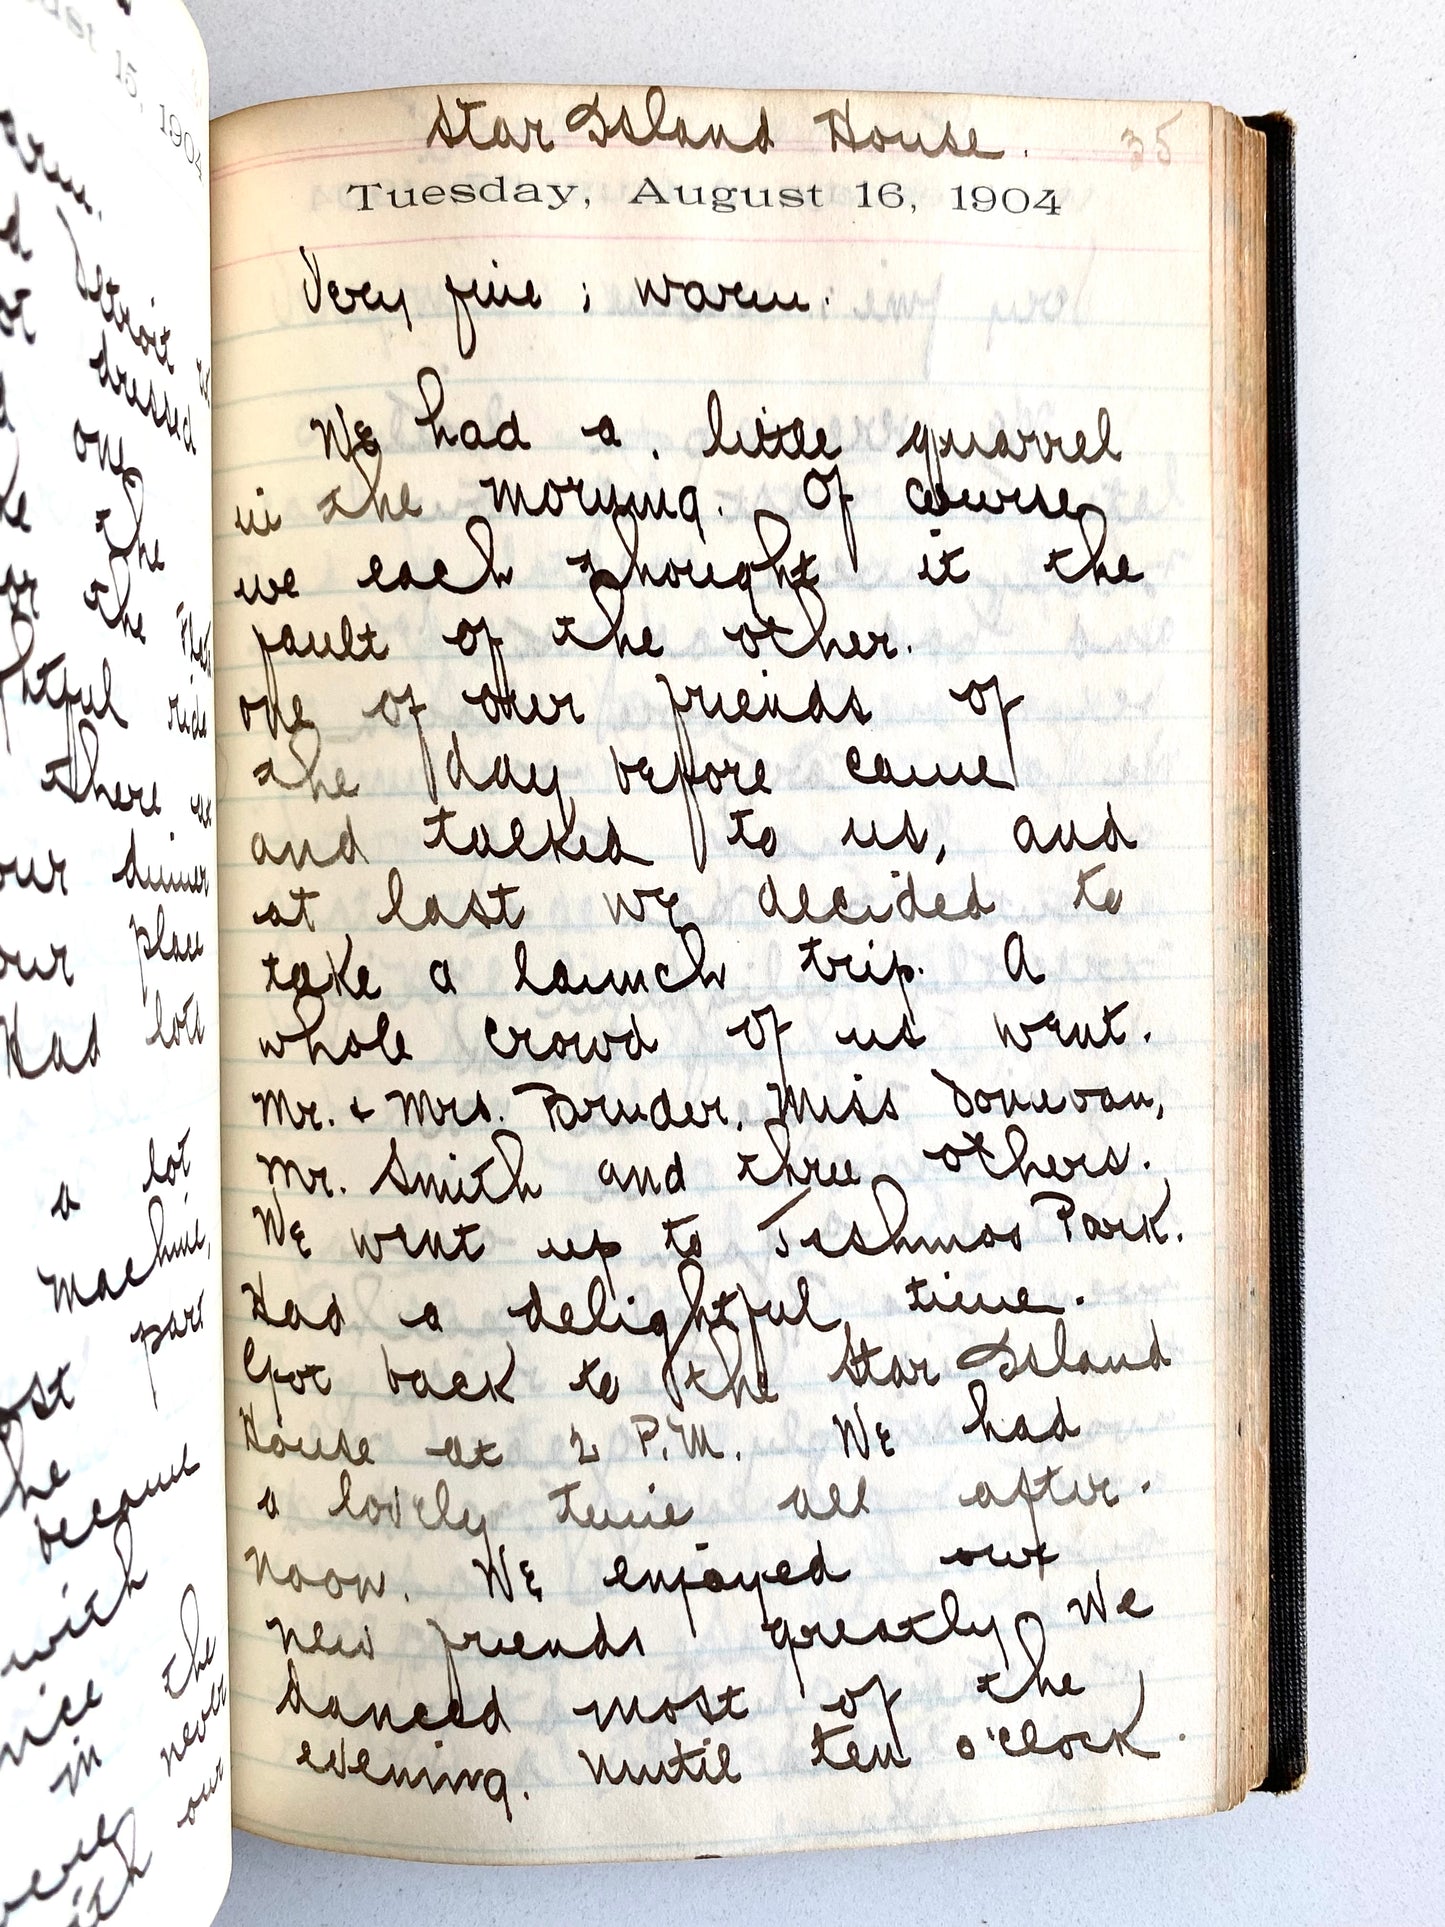 Star Island House.
35
Tuesday, August 16, 1904
Very fine; warm.
We had a little quarrel
in the morning. Of course
we each thought it the
fault of the other.
one of our friends of
the day before came
and talked to us, and
at last we decided to
take a launch trip. A
whole crowd of us went.
Mr. & Mrs. Bruder, Miss Donevan,
Mr. Smith and three others.
We went up to Tashmoo Park.
Had a delightful time.
Got back to the Star Island
House at 2 P.M. We had
a lovely time all after-
noon. We enjoyed our
new friends greatly We
danced most of the
evening. until ten o'clock.
15, 1904
Detroit
dressed
one
the
the Flats
ride
there
our dinner
our place
Had lots
a lot
machine,
part
because
with
nice the
in never
our